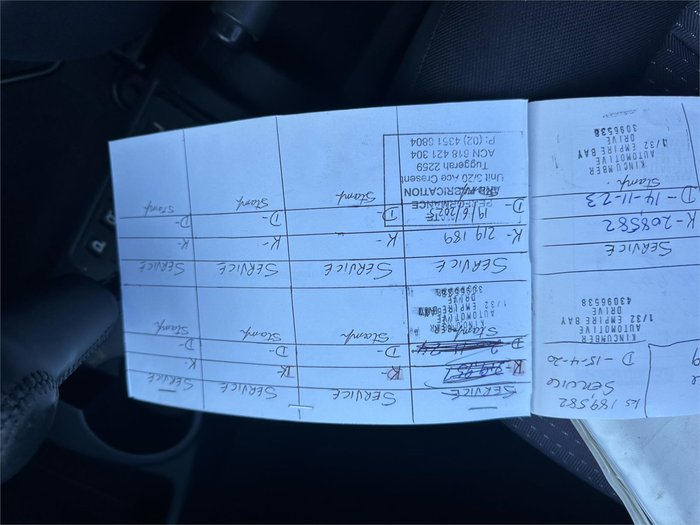 ks 189,582
SERVICE
D-15-4-20
KINCUMBER
AUTOMOTIVE
1/32 EMPIRE BAY
DRIVE
43096538
SERVICE
K-208,582
D-14-11-23
Stamp
KINCUMBER
AUTOMOTIVE
1/32 EMPIRE BAY
DRIVE
3096538
SERVICE SERVICE SERVICE SERVICE
K- K- K- K
D- D- D- D-
Stamp Stamp Stamp Stamp
KINCUMBER
AUTOMOTIVE
1/32 EMPIRE BAY
DRIVE
SERVICE SERVICE SERVICE SERVICE
K- 219 189 K- K- K-
D- 19/6/2025 D D- D-
Stamp Stamp Stamp
PERFORMANCE
Unit 5/20 Ace Cresent
Tuggerah 2259
ACN 618 421 304
P: (02) 4351 0804